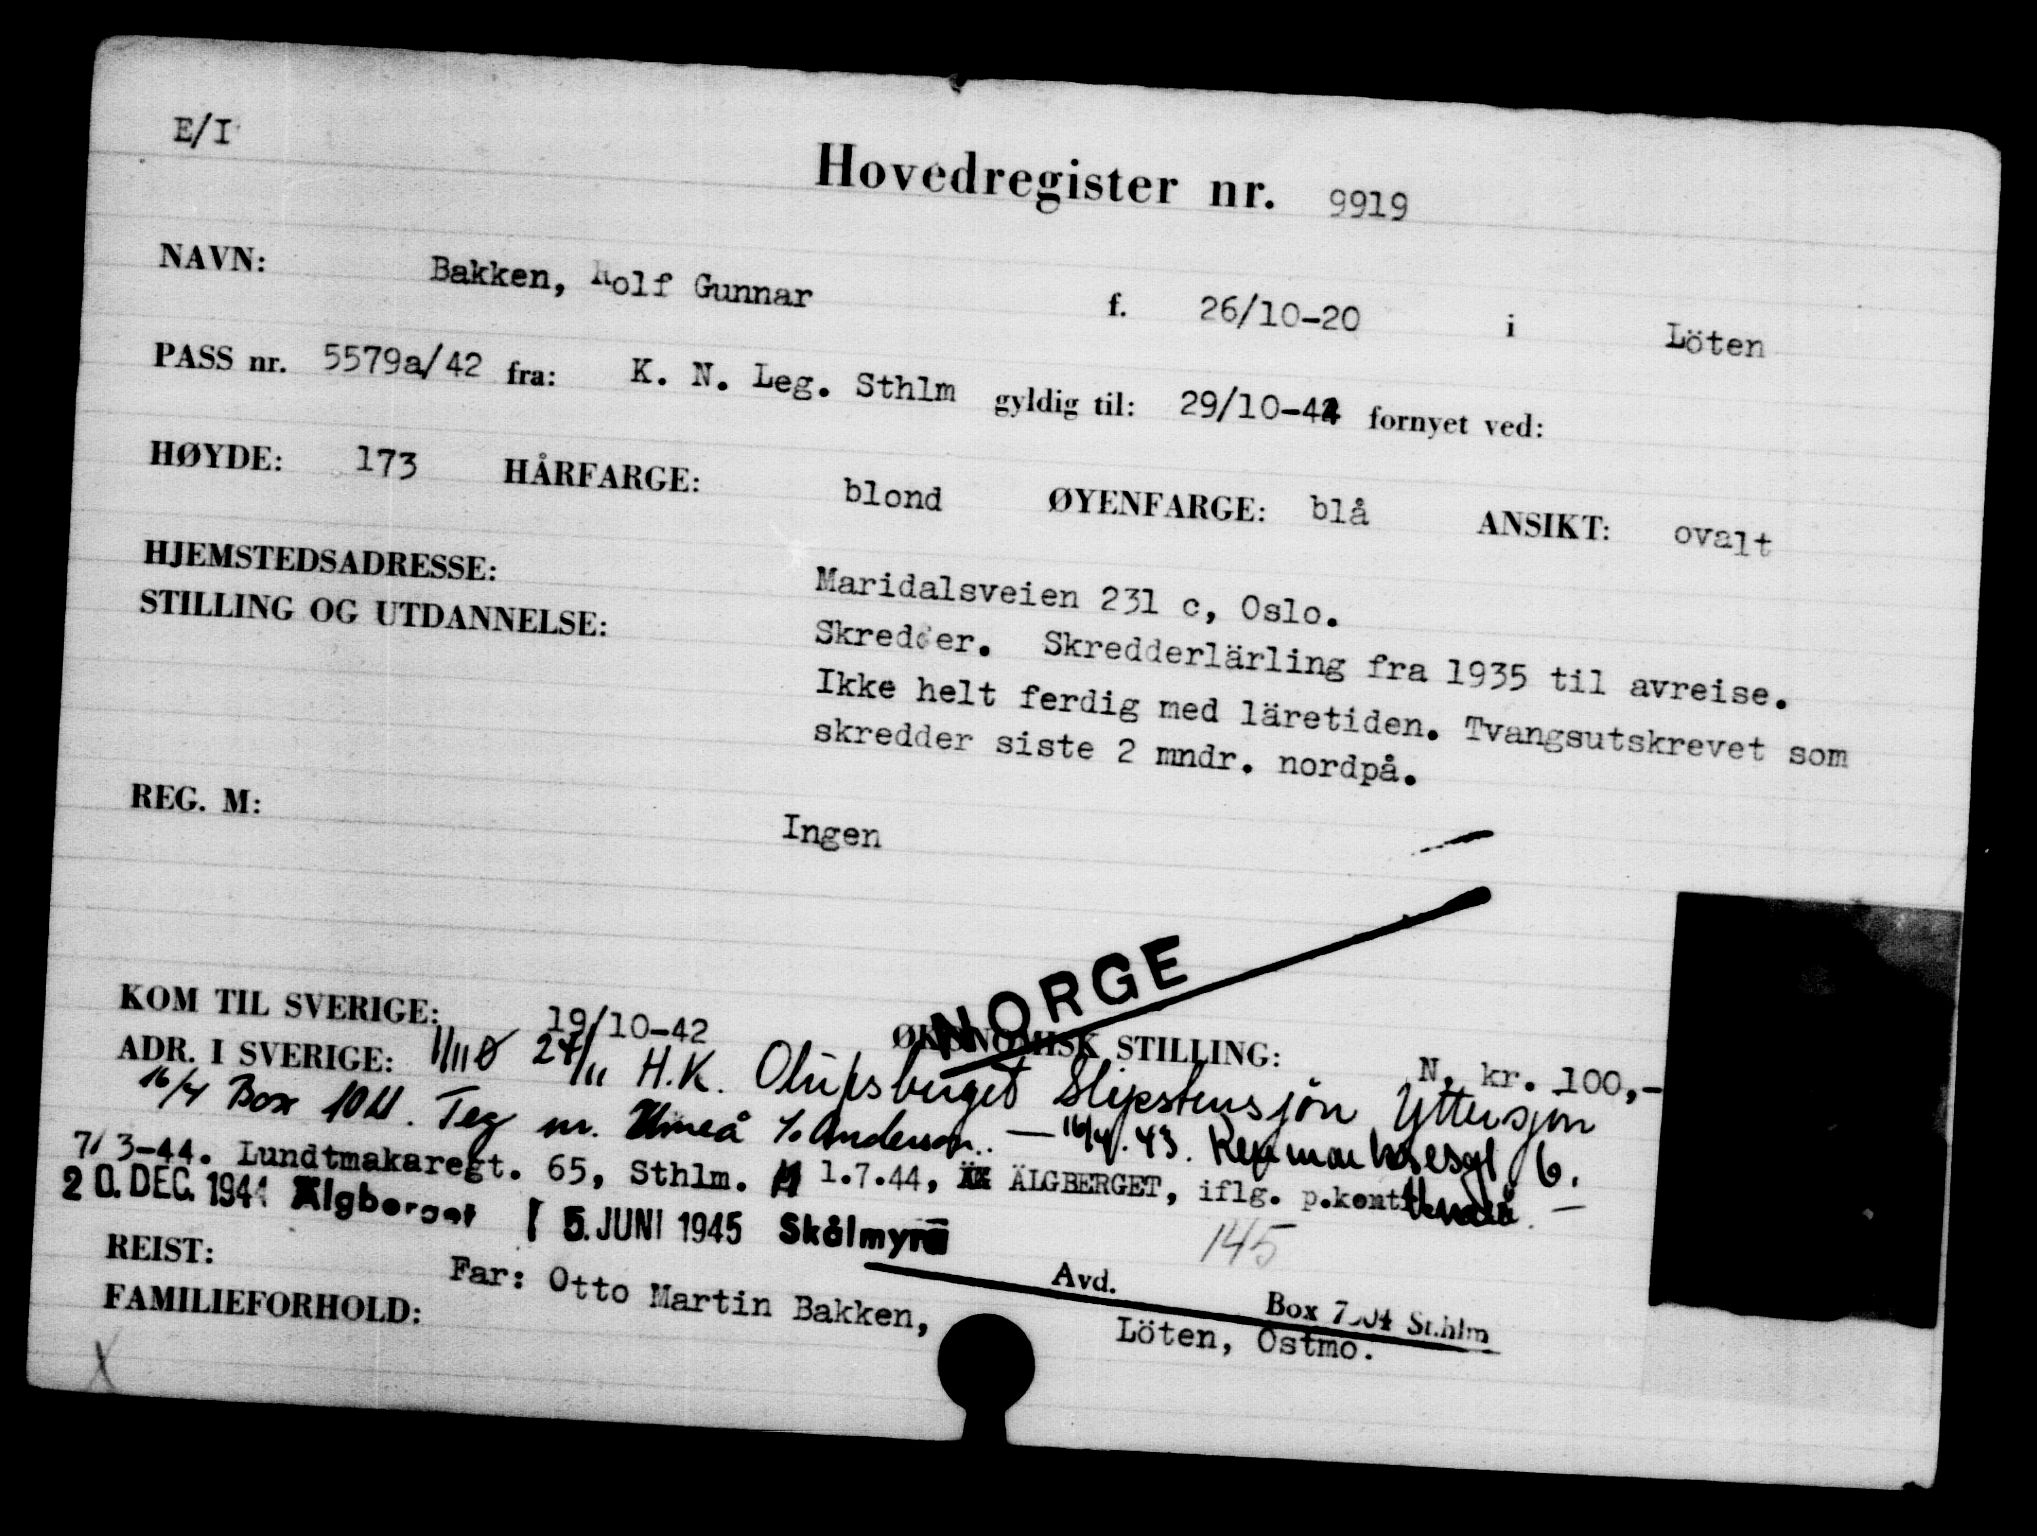 E/I
Hovedregister nr. 9919
NAVN: Bakken, Rolf Gunnar f. 26/10-20 i Löten
PASS nr. 5579a/42 fra: K. N. Leg. Sthlm gyldig til: 29/10-44 fornyet ved:
HØYDE: 173 HÅRFARGE: blond ØYENFARGE: blå ANSIKT: ovalt
HJEMSTEDSADRESSE: Maridalsveien 231 c, Oslo.
STILLING OG UTDANNELSE: Skredder. Skredderlärling fra 1935 til avreise.
Ikke helt ferdig med läretiden. Tvangsutskrevet som
skredder siste 2 mndr. nordpå.
REG. M: Ingen
NORGE
KOM TIL SVERIGE: 19/10-42 ØKONOMISK STILLING: N. kr. 100,-
ADR. I SVERIGE: 24/11 H.K. Slipstensjön Yttersjön
16/4 Box Teg pr. Umeå Anderson. — 16/4.43. 6.
7/3-44. Lundtmakaregt. 65, Sthlm. 1.7.44, ÄLGBERGET, iflg. p.kont Umeå. —
20. DEC. 1944 Älgberget 5. JUNI 1945 Skålmyra
145
REIST: Avd. Box Sthlm
FAMILIEFORHOLD: Far: Otto Martin Bakken, Löten, Östmo.
X